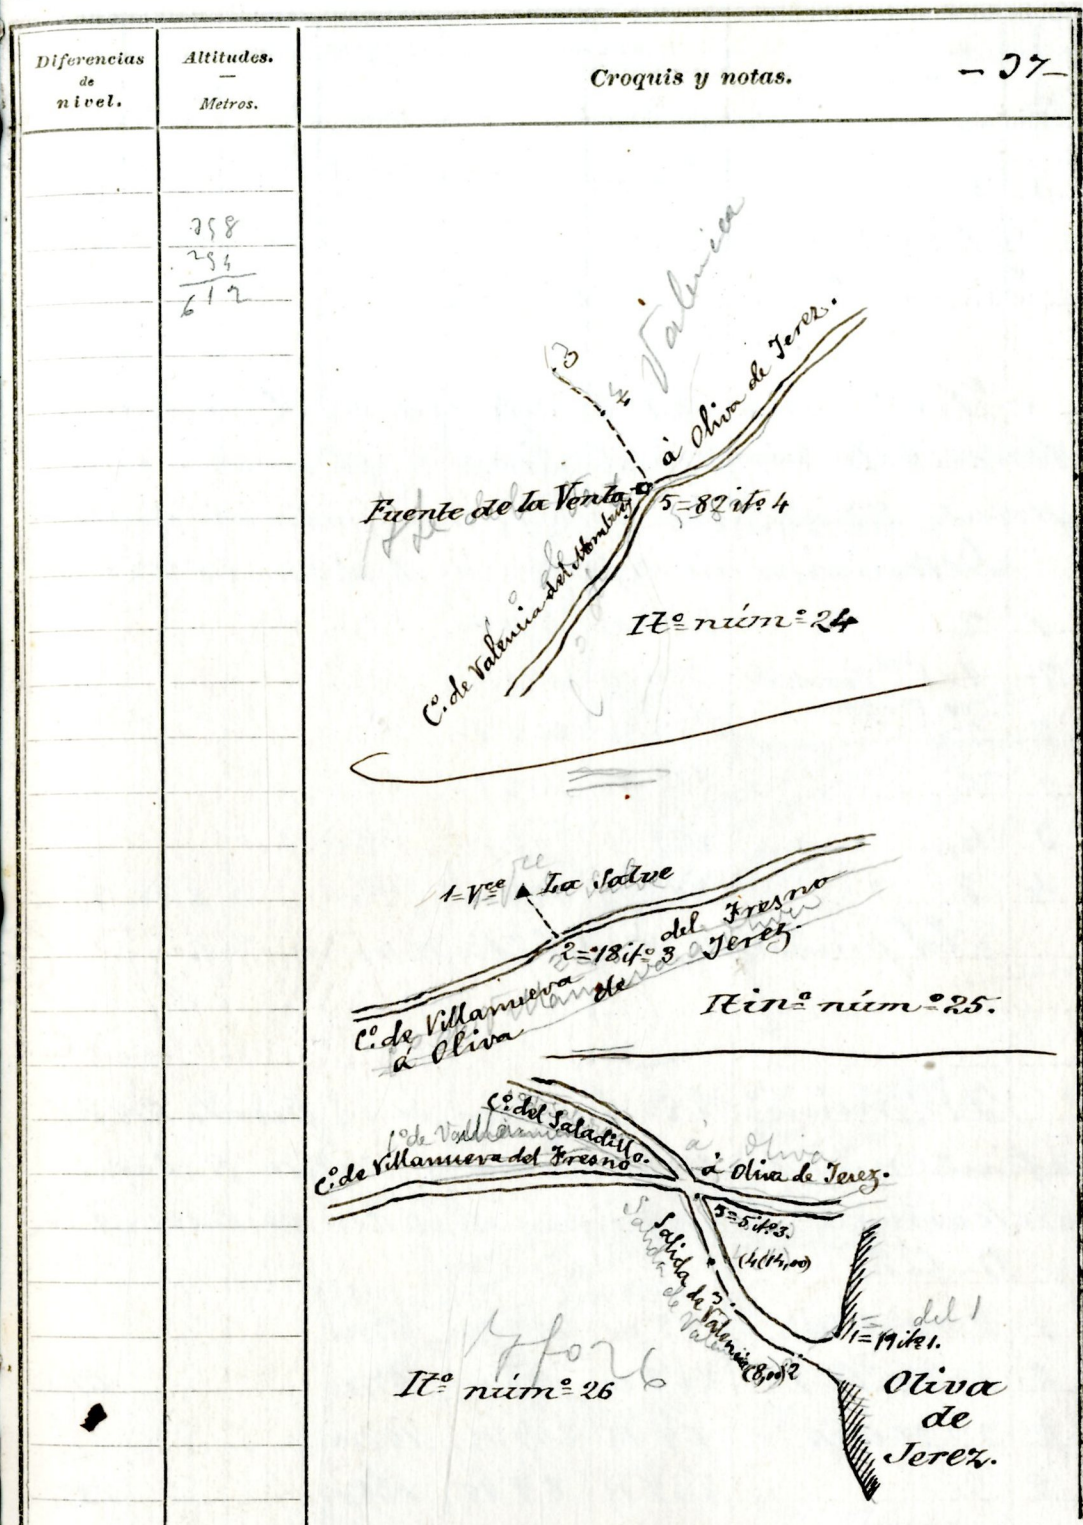 Diferencias
de
nivel.
Altitudes.
Metros.
Croquis y notas.
- 37 -
612
3
4
Valencia
á Oliva de Jerez.
Fuente de la Venta
5=82 itº 4
Cº. de Valencia del Mombuey
Itº núm.º 24
1=Vce
La Salve
2=18 itº 3
Cº. de Villanueva del Fresno
á Oliva de Jerez.
Itinº núm.º 25.
Cº. del Saladillo.
Cº. de Villanueva del Fresno
á Oliva
á Oliva de Jerez.
5=5 itº 3.
(4(14,00)
Salida de Valencia
Salida de Valencia
3.
(8,00) 2
del 1
1=19 itº 1.
Itº núm.º 26
Oliva
de
Jerez.